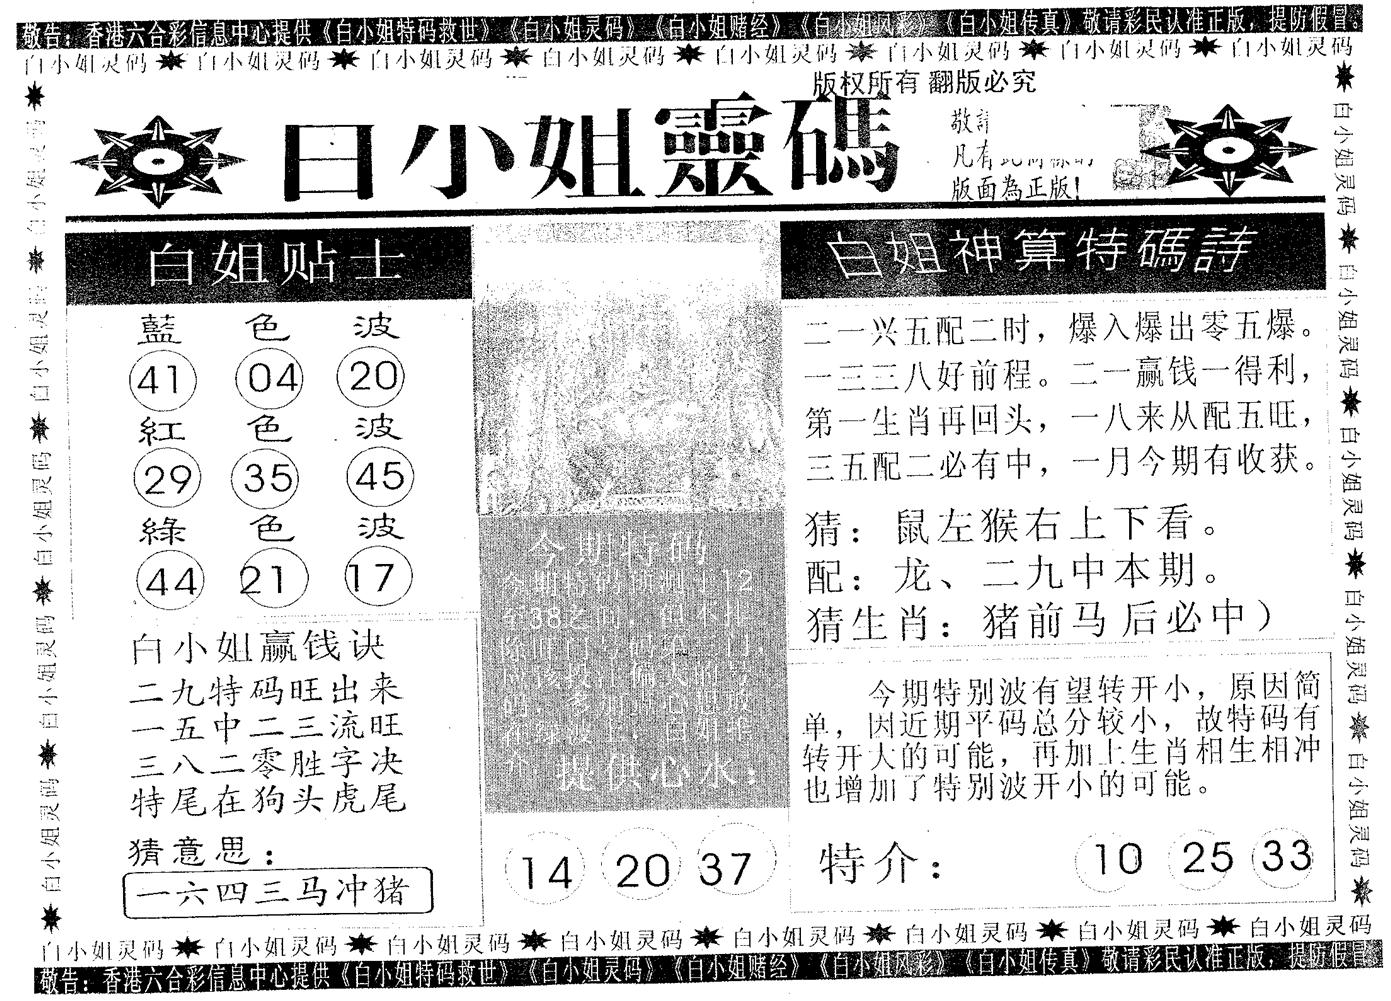 敬告：香港六合彩信息中心提供《白小姐特码救世》《白小姐灵码》《白小姐赌经》《白小姐风彩》《白小姐传真》敬请彩民认准正版，提防假冒。
白小姐灵码 白小姐灵码 白小姐灵码 白小姐灵码 白小姐灵码 白小姐灵码 白小姐灵码 白小姐灵码
版权所有 翻版必究
白小姐靈碼
敬
凡有
版面為正版！
白姐贴士
藍色波
41 04 20
紅色波
29 35 45
綠色波
44 21 17
白小姐赢钱诀
二九特码旺出来
一五中二三流旺
三八二零胜字决
特尾在狗头虎尾
猜意思：
一六四三马冲猪
今期特码
提供心水：
14 20 37
白姐神算特碼詩
二一兴五配二时，爆入爆出零五爆。
一三三八好前程。二一赢钱一得利，
第一生肖再回头，一八来从配五旺，
三五配二必有中，一月今期有收获。
猜：鼠左猴右上下看。
配：龙、二九中本期。
猜生肖：猪前马后必中）
今期特别波有望转开小，原因简
单，因近期平码总分较小，故特码有
转开大的可能，再加上生肖相生相冲
也增加了特别波开小的可能。
特介：10 25 33
白小姐灵码 白小姐灵码 白小姐灵码 白小姐灵码 白小姐灵码
白小姐灵码 白小姐灵码 白小姐灵码 白小姐灵码 白小姐灵码
白小姐灵码 白小姐灵码 白小姐灵码 白小姐灵码 白小姐灵码 白小姐灵码 白小姐灵码 白小姐灵码
敬告：香港六合彩信息中心提供《白小姐特码救世》《白小姐灵码》《白小姐赌经》《白小姐风彩》《白小姐传真》敬请彩民认准正版，提防假冒